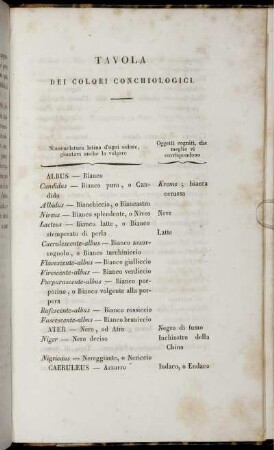 TAVOLA
DEI COLORI CONCHIOLOGICI
Nomenclatura latina d'ogni colore, Oggetti cogniti, che
giuntavi anche la volgare meglio vi
corrispondono
ALBUS — Bianco
Candidus — Bianco puro, o Can- Krems; biacca
dida cerussa
Albidus — Bianchiccio, o Biancastro
Niveus — Bianco splendente, o Niveo Neve
Lacteus — Bianco latte, o Bianco
stemperato di perla Latte
Caerulescente-albus — Bianco azzur-
rognolo, o Bianco turchiniccio
Flavescente-albus — Bianco gialliccio
Virescente-albus — Bianco verdiccio
Purpurascente-albus — Bianco por-
porino, o Bianco volgente alla por-
pora
Rufescente-albus — Bianco rossiccio
Fuscescente-albus — Bianco bruniccio
ATER — Nero, od Atro Negro di fumo
Niger — Nero deciso Inchiostro della
China
Nigricans — Nereggiante, o Nericcio
CAERULEUS — Azzurro Indaco, o Endaco